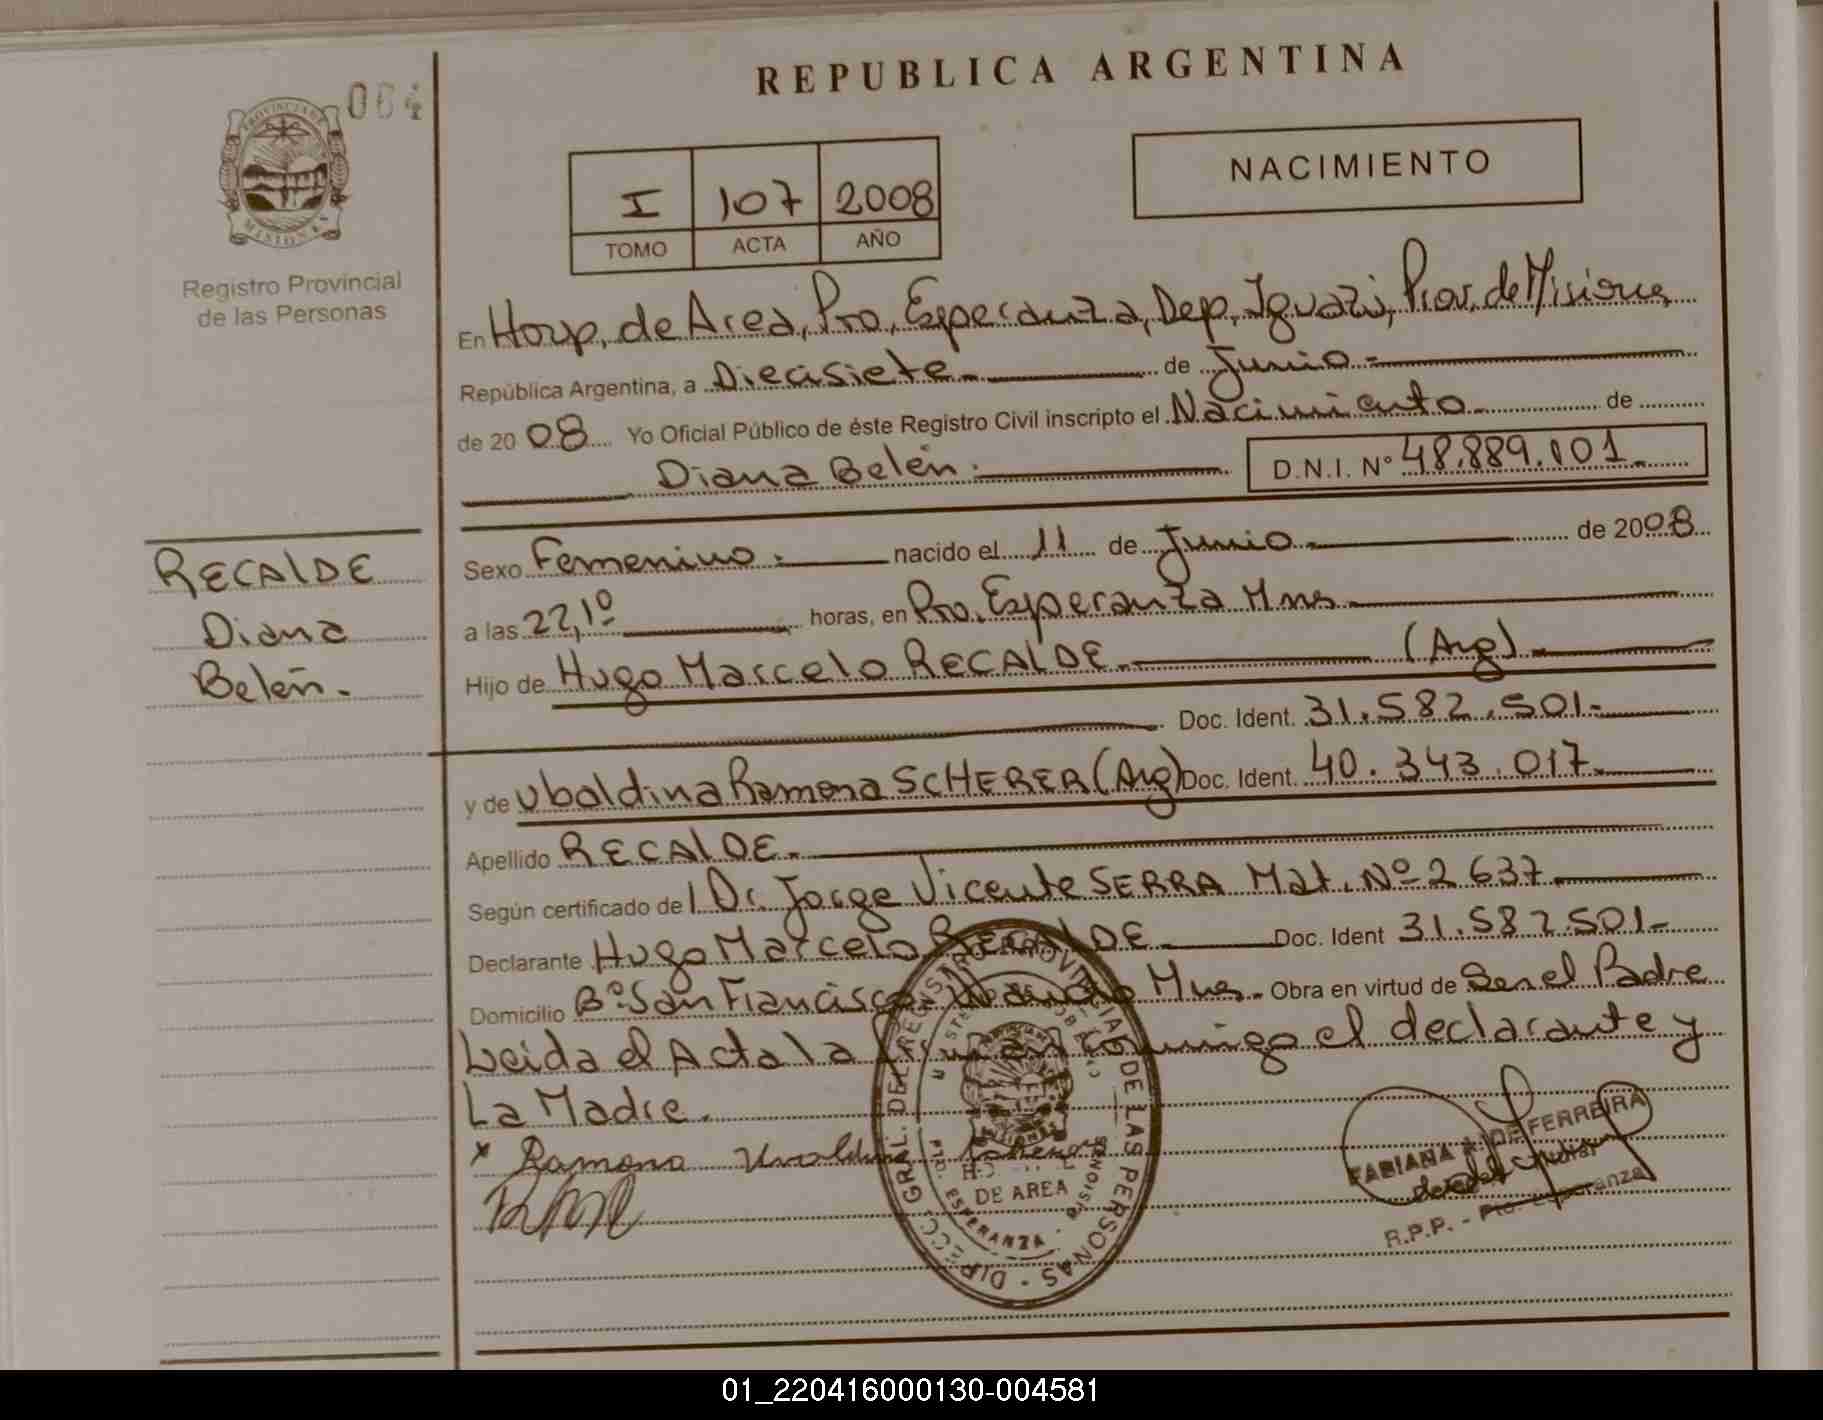 064
REPUBLICA ARGENTINA
PROVINCIA DE
MISIONES
Registro Provincial
de las Personas
I 107 2008
TOMO ACTA AÑO
NACIMIENTO
En Hosp. de Area, Pto. Esperanza, Dep. Iguazú, Prov. de Misiones
República Argentina, a Diecisiete.- de Junio.-
de 20 08 Yo Oficial Público de éste Registro Civil inscripto el Nacimiento de
Diana Belén.- D.N.I. Nº 48.889.101.
RECALDE
Diana
Belén.-
Sexo Femenino.- nacido el 11 de Junio.- de 2008
a las 22,10 horas, en Pto. Esperanza Mnes
Hijo de Hugo Marcelo RECALDE.- (Arg).-
Doc. Ident. 31.582.501.-
y de Ubaldina Ramona SCHERER (Arg) Doc. Ident. 40.343.017.-
Apellido RECALDE.-
Según certificado del Dr. Jorge Vicente SERRA Mat. Nº 2637.-
Declarante Hugo Marcelo RECALDE.- Doc. Ident 31.582.501-
Domicilio Bº San Francisco- Wanda Mnes.- Obra en virtud de Ser el Padre
Leida el Acta la firman conmigo el declarante y
La Madre.
x Ramona
DIRECC. GRAL. DEL REGISTRO PROVINCIAL DE LAS PERSONAS
DE AREA
PTO. ESPERANZA - MISIONES
FABIANA A. DE FERREIRA
R.P.P. - Pto. Esperanza
01_220416000130-004581